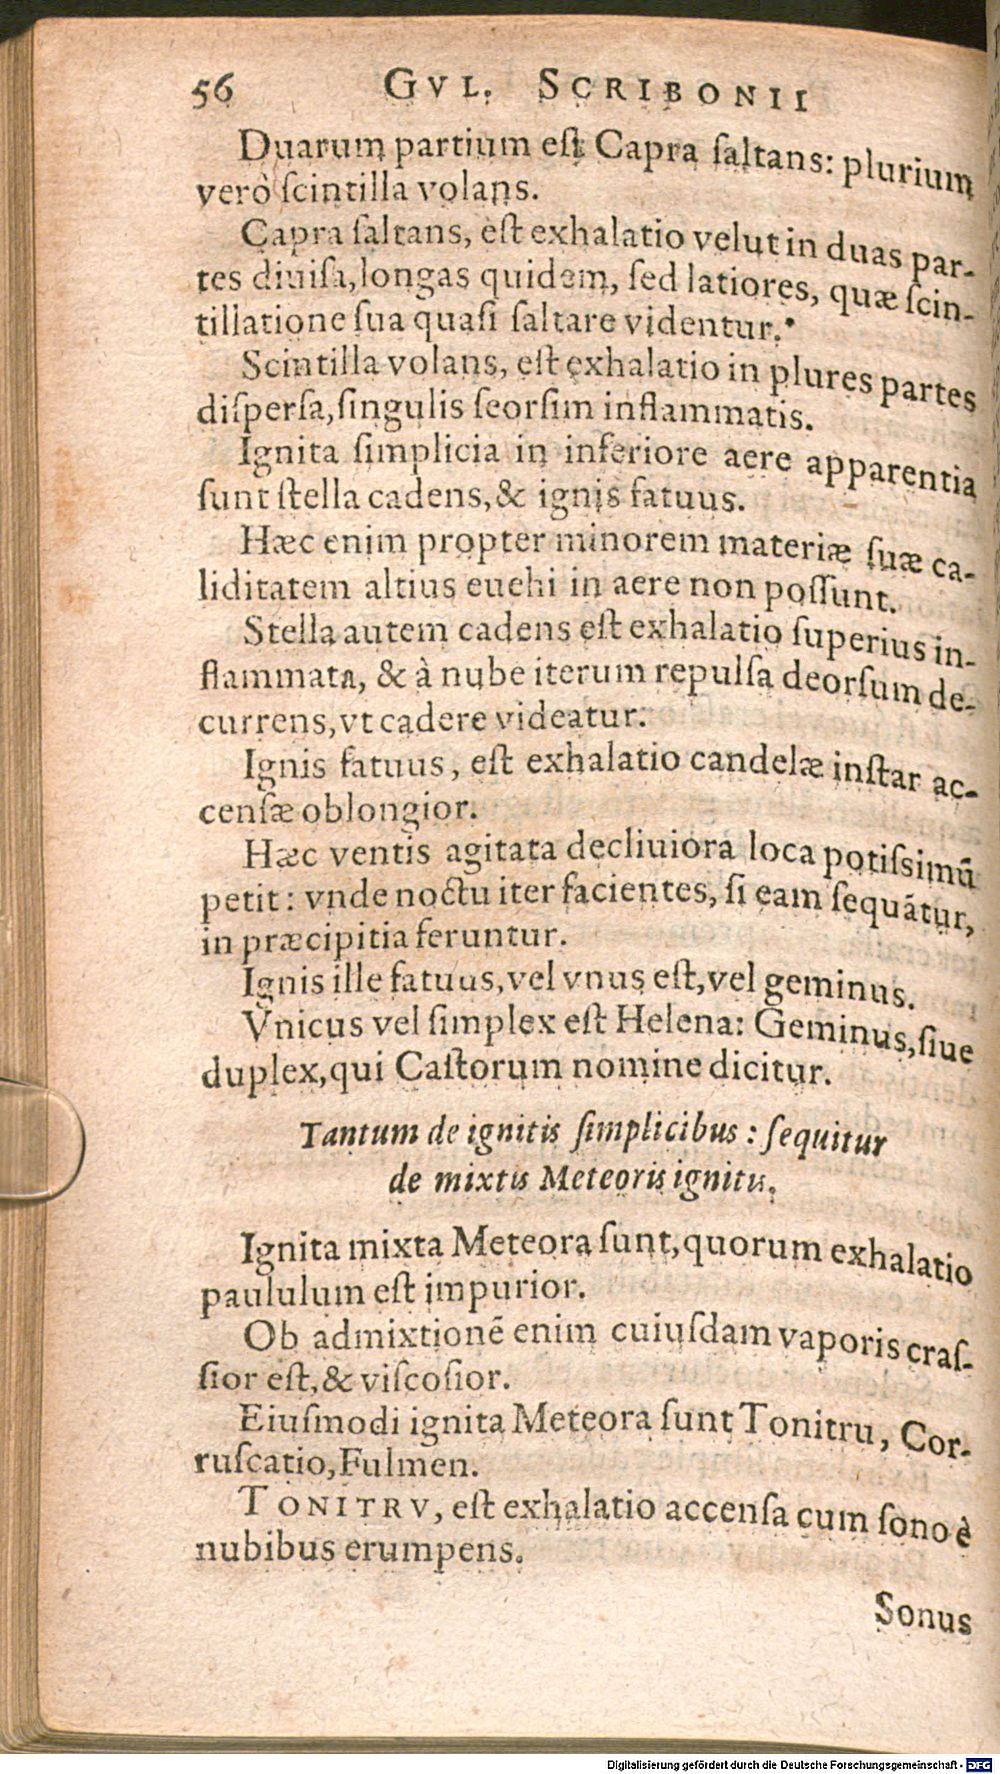 56 GVL. SCRIBONII
Duarum partium eſt Capra ſaltans: plurium
verò ſcintilla volans.
Capra ſaltans, eſt exhalatio velut in duas par-
tes diuiſa, longas quidem, ſed latiores, quæ ſcin-
tillatione ſua quaſi ſaltare videntur.
Scintilla volans, eſt exhalatio in plures partes
diſperſa, ſingulis ſeorſim inflammatis.
Ignita ſimplicia in inferiore aere apparentia
ſunt ſtella cadens, & ignis fatuus.
Hæc enim propter minorem materiæ ſuæ ca-
liditatem altius euehi in aere non poſſunt.
Stella autem cadens eſt exhalatio ſuperius in-
flammata, & à nube iterum repulſa deorſum de-
currens, vt cadere videatur.
Ignis fatuus, eſt exhalatio candelæ inſtar ac-
cenſæ oblongior.
Hæc ventis agitata decliuiora loca potiſsimũ
petit: vnde noctu iter facientes, ſi eam ſequãtur,
in præcipitia feruntur.
Ignis ille fatuus, vel vnus eſt, vel geminus.
Vnicus vel ſimplex eſt Helena: Geminus, ſiue
duplex, qui Caſtorum nomine dicitur.
Tantum de ignitis ſimplicibus: ſequitur
de mixtis Meteoris ignitis.
Ignita mixta Meteora ſunt, quorum exhalatio
paululum eſt impurior.
Ob admixtionẽ enim cuiuſdam vaporis craſ-
ſior eſt, & viſcoſior.
Eiuſmodi ignita Meteora ſunt Tonitru, Cor-
ruſcatio, Fulmen.
TONITRV, eſt exhalatio accenſa cum ſono è
nubibus erumpens.
Sonus
Digitalisierung gefördert durch die Deutsche Forschungsgemeinschaft - DFG